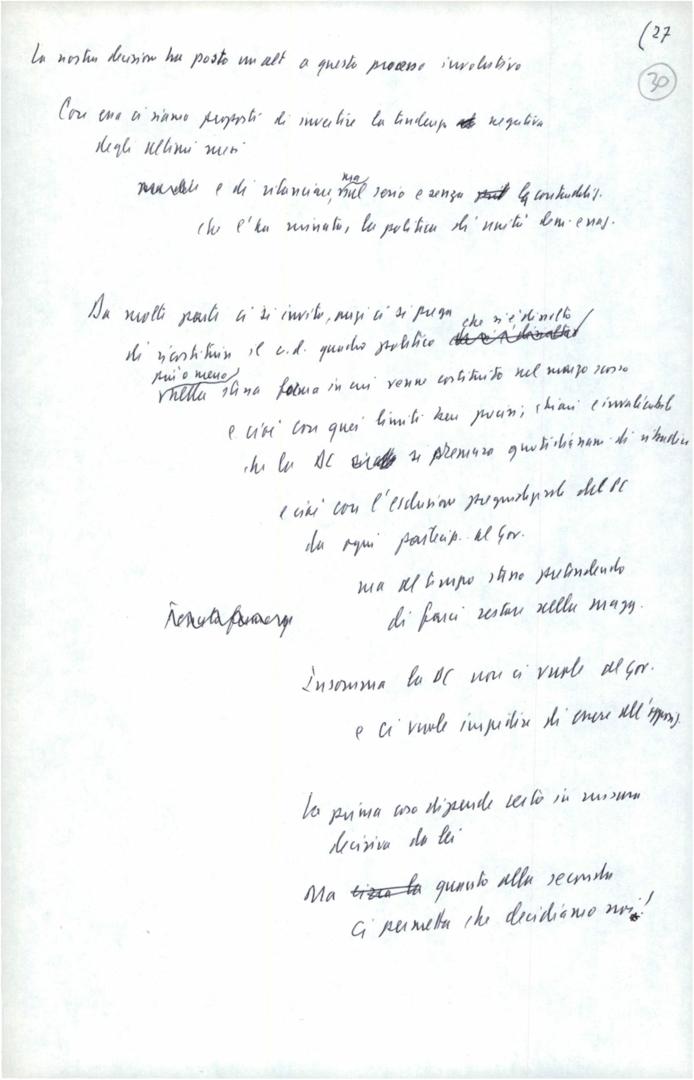 (27
30
La nostra decisione ha posto un alt a questo processo involutivo
Con essa ci siamo proposti di invertire la tendenza negativa
degli ultimi mesi
e di rilanciare, ma sul serio e senza le contraddiz.
che l'ha minata, la politica di unità dem. e naz.
Da molte parti ci si invita, anzi ci si prega
che si è dissolto
di ricostituire il c.d. quadro politico
più o meno
nella stessa forma in cui venne costituito nel marzo scorso
e cioè con quei limiti ben precisi, chiari e invalicabili
che la DC si premura quotidianam. di ribadire
e cioè con l'esclusione pregiudiziale del PC
da ogni partecip. al Gov.
ma al tempo stesso pretendendo
di farci restare nella magg.
Insomma la DC non ci vuole al Gov.
e ci vuole impedire di essere all'oppos.
La prima cosa dipende certo in misura
decisiva da lei
Ma quanto alla seconda
ci permetta che decidiamo noi!